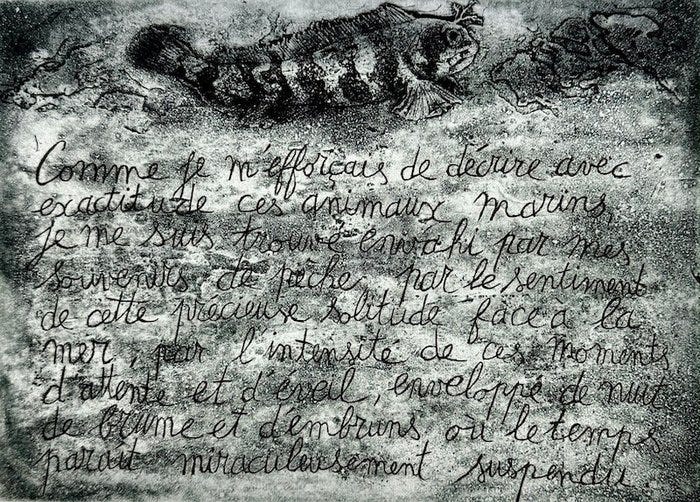 Comme je m'efforçais de décrire avec
exactitude ces animaux marins,
je me suis trouvé envahi par mes
souvenirs de pêche, par le sentiment
de cette précieuse solitude face à la
mer, par l'intensité de ces moments
d'attente et d'éveil, enveloppé de nuit
de brume et d'embruns où le temps
parait miraculeusement suspendu.